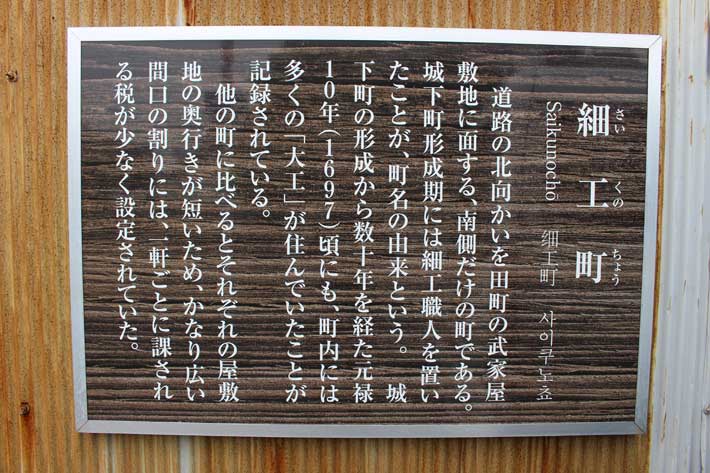 細工町
さいくのちょう
Saikunochō 細工町 사이쿠노쵸
道路の北向かいを田町の武家屋
敷地に面する、南側だけの町である。
城下町形成期には細工職人を置い
たことが、町名の由来という。 城
下町の形成から数十年を経た元禄
10年(1697)頃にも、町内には
多くの「大工」が住んでいたことが
記録されている。
他の町に比べるとそれぞれの屋敷
地の奥行きが短いため、かなり広い
間口の割りには、一軒ごとに課され
る税が少なく設定されていた。